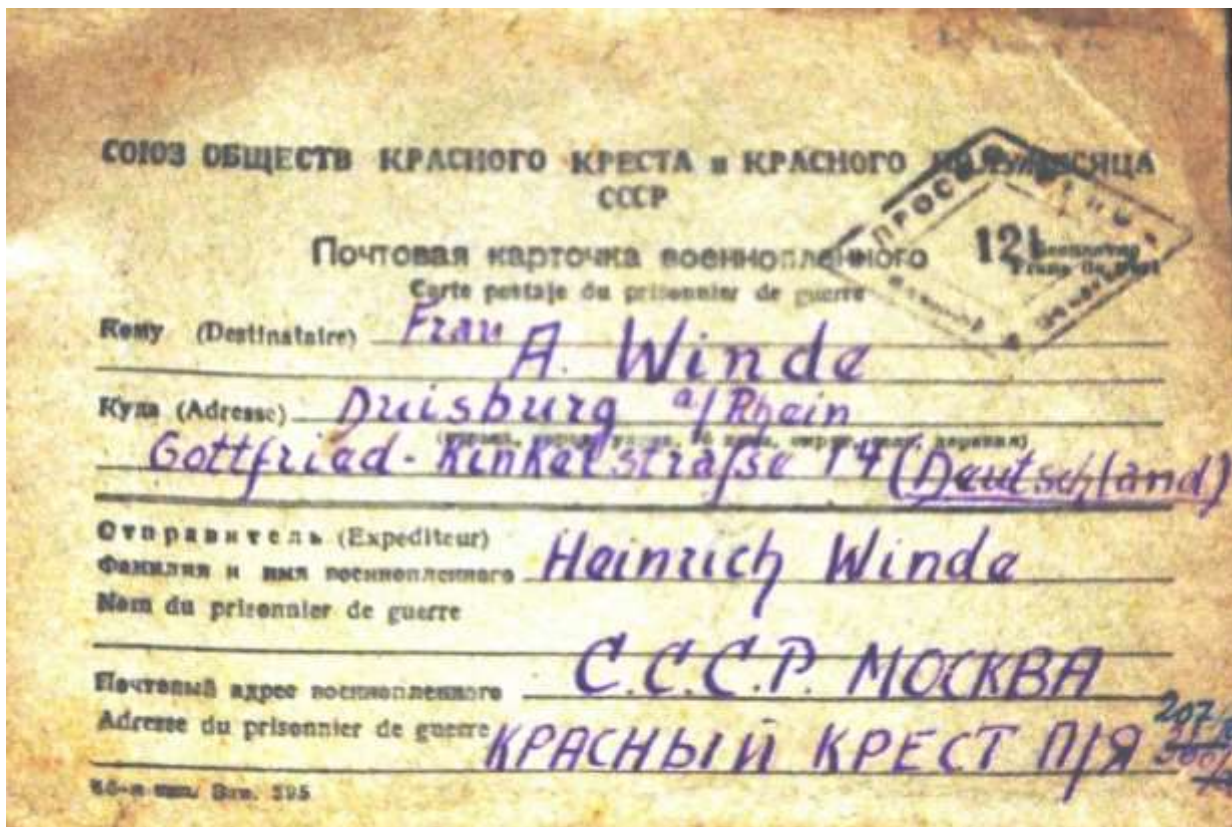 СОЮЗ ОБЩЕСТВ КРАСНОГО КРЕСТА и КРАСНОГО ПОЛУМЕСЯЦА
СССР
Почтовая карточка военнопленного
Carte postale du prisonnier de guerre
ПРОСМОТРЕНО
121
Кому (Destinataire) Frau
A. Winde
Куда (Adresse) Duisburg a/Rhein
Gottfried-Kinkelstraße 14 (Deutschland)
Отправитель (Expediteur)
Фамилия и имя военнопленного Heinrich Winde
Nom du prisonnier de guerre
Почтовый адрес военнопленного С.С.С.Р. МОСКВА
Adresse du prisonnier de guerre КРАСНЫЙ КРЕСТ П/Я